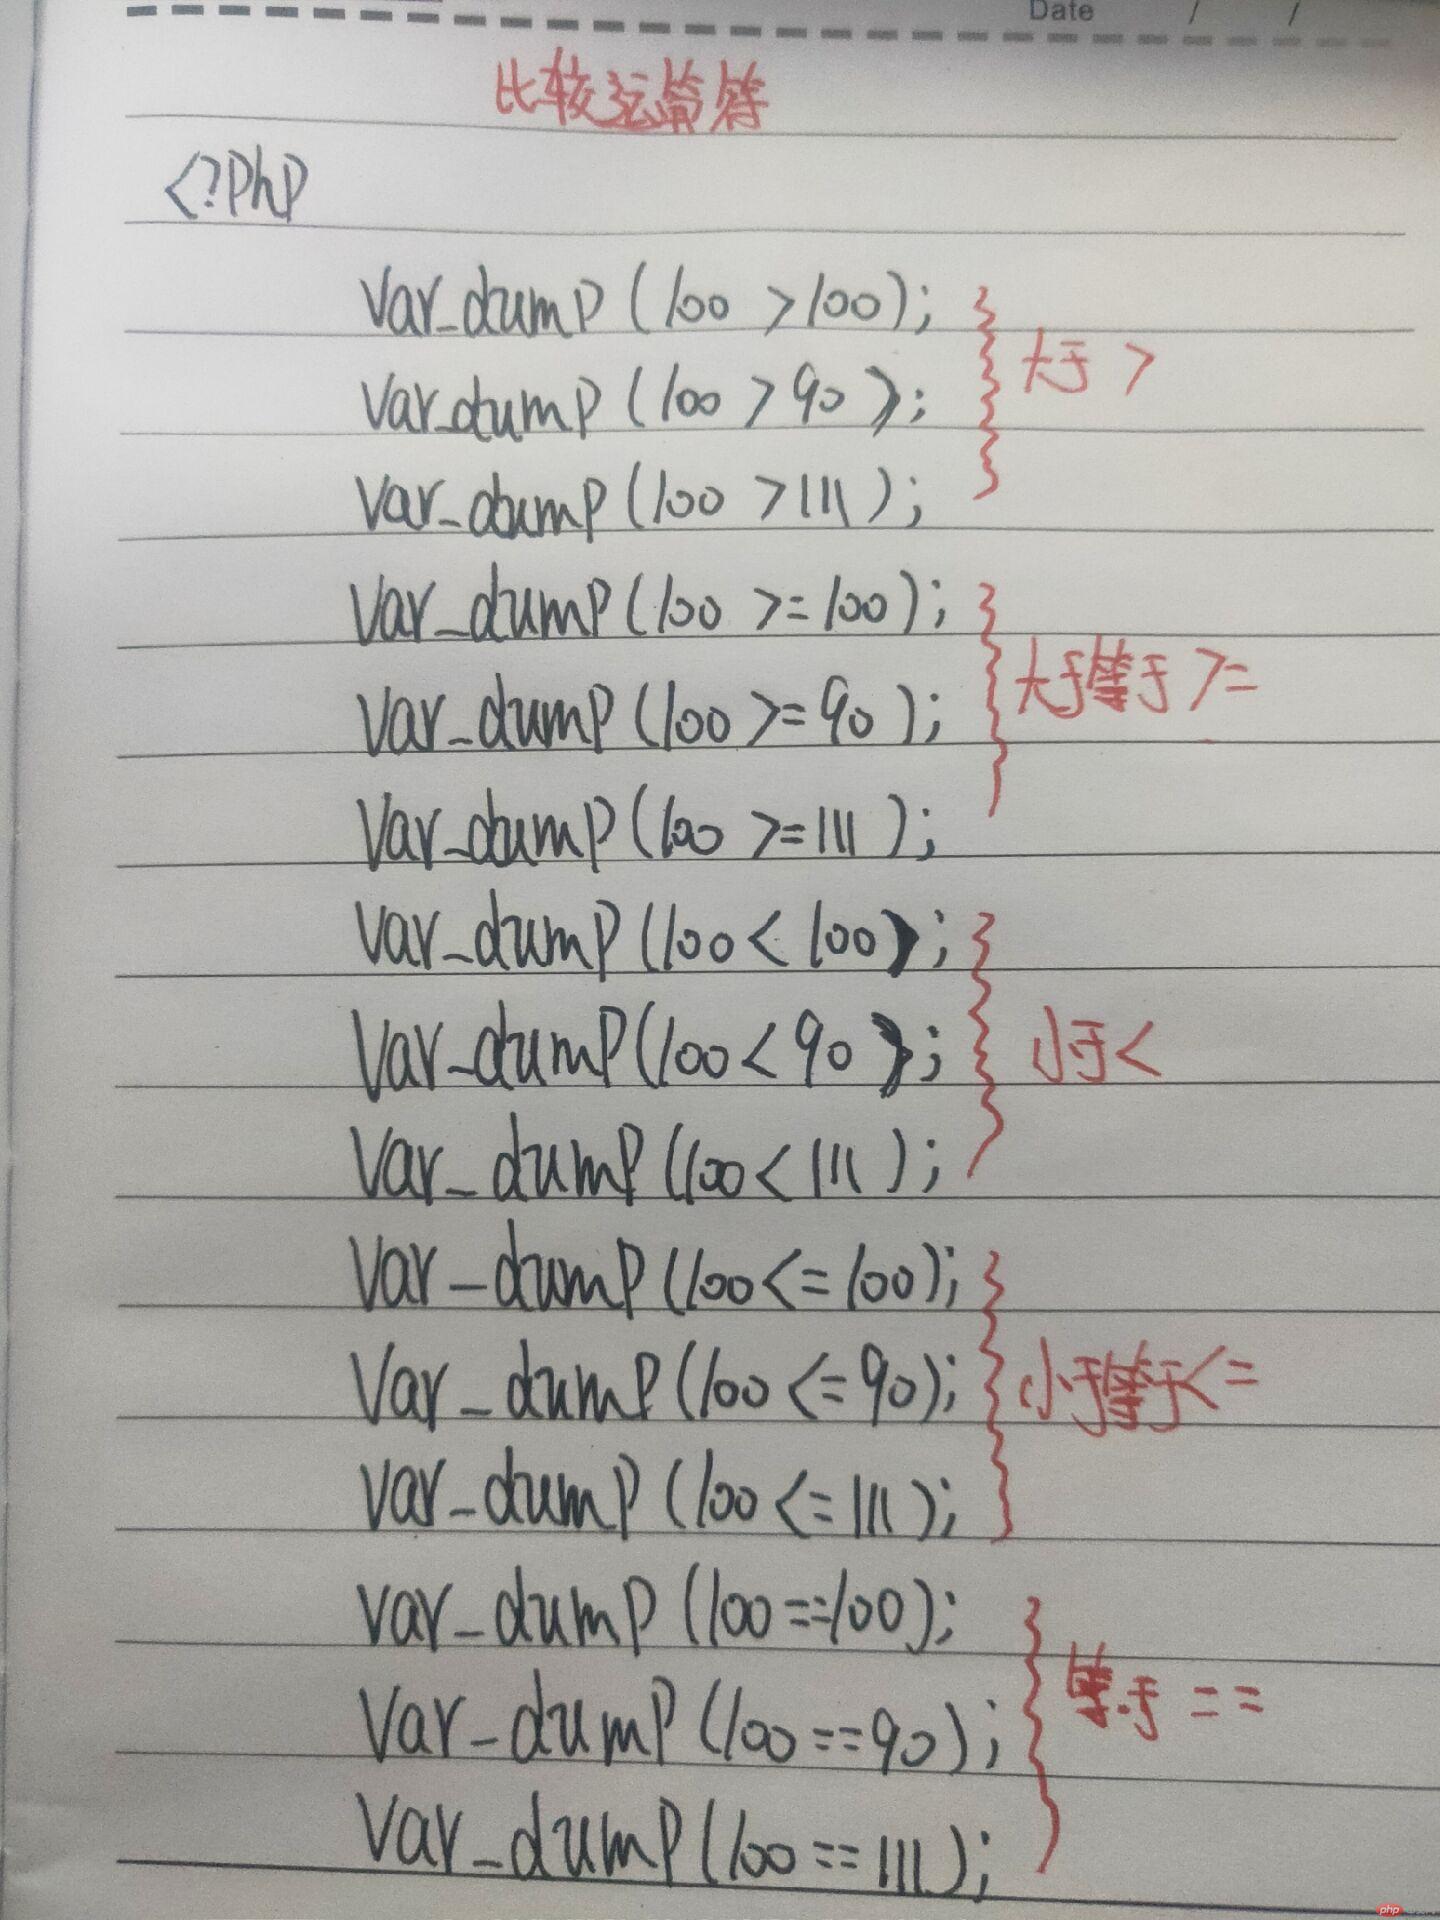 Date / /
比较运算符
<?php
var_dump(100 >100);
var_dump(100 >90);
大于 >
var_dump(100 >111);
var_dump(100 >=100);
var_dump(100 >=90);
大于等于 >=
var_dump(100 >=111);
var_dump(100< 100);
var_dump(100<90);
小于<
var_dump(100<111);
var_dump(100<=100);
var_dump(100<=90);
小于等于<=
var_dump(100<=111);
var_dump(100==100);
var_dump(100==90);
等于 ==
var_dump(100==111);
php